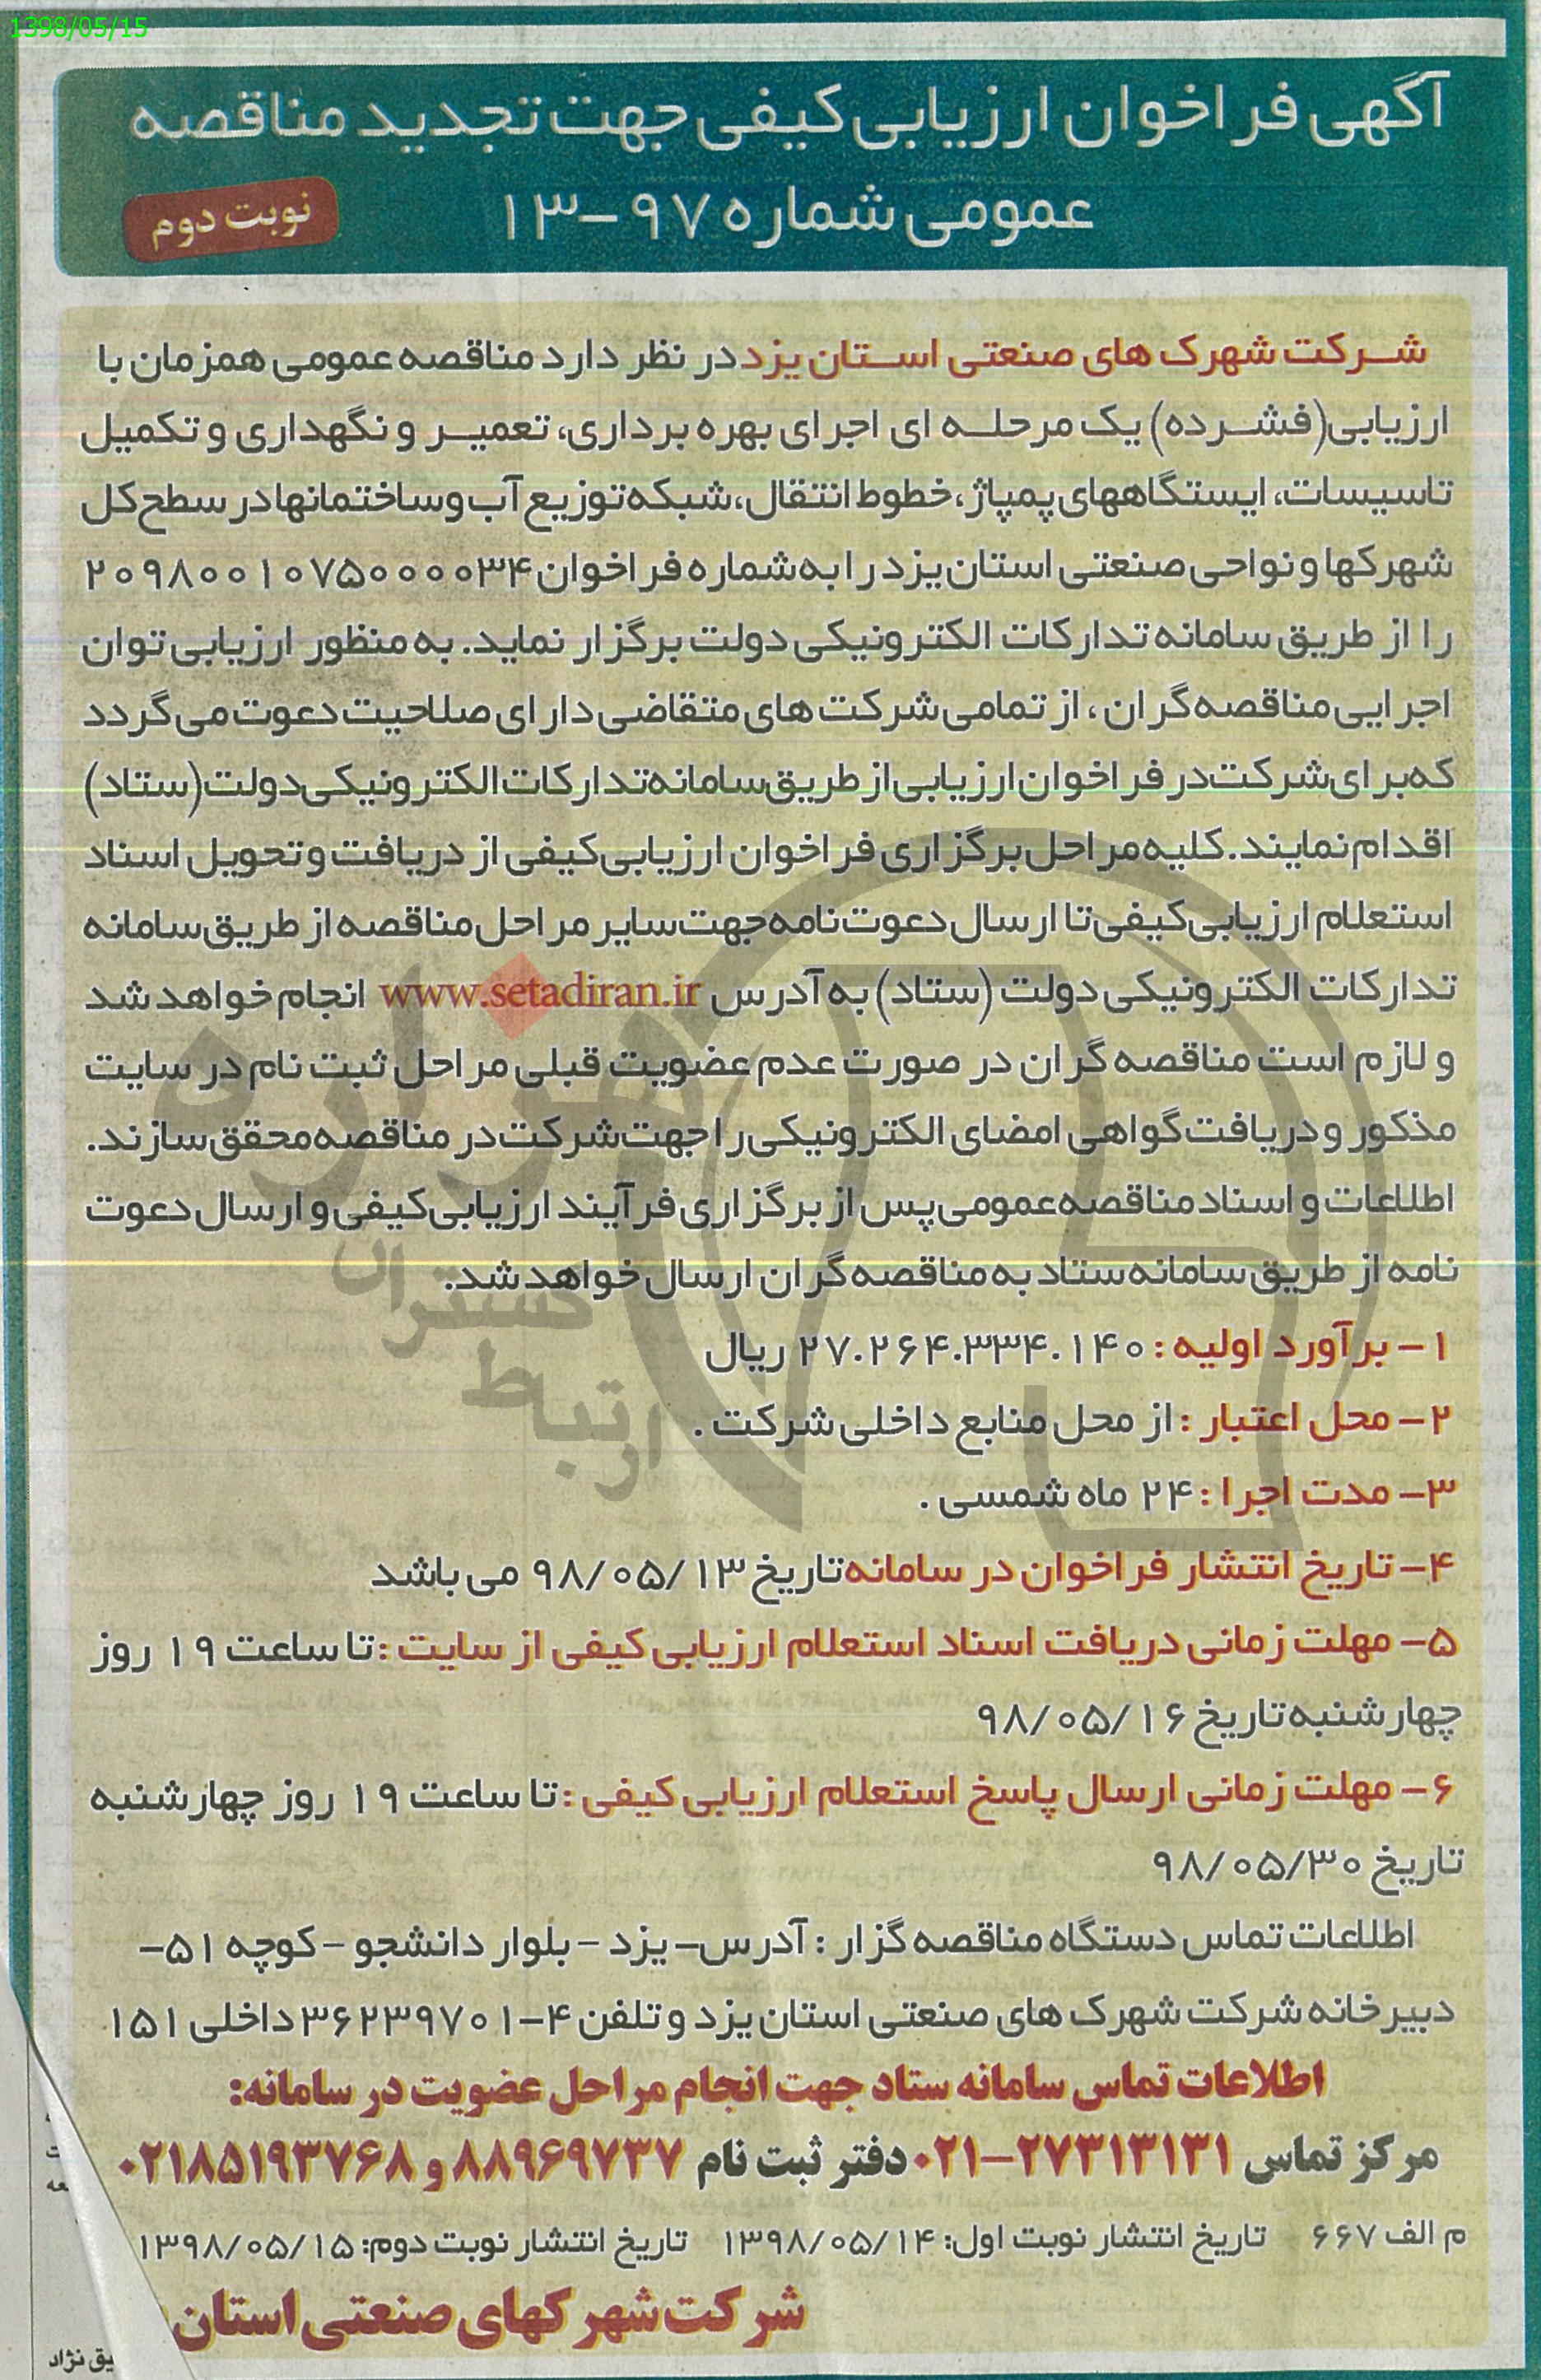 1398/05/15
آگهی فراخوان ارزیابی کیفی جهت تجدید مناقصه
عمومی شماره ۹۷-۱۳
نوبت دوم
شرکت شهرک های صنعتی استان یزد در نظر دارد مناقصه عمومی همزمان با
ارزیابی(فشرده) یک مرحله ای اجرای بهره برداری، تعمیر و نگهداری و تکمیل
تاسیسات، ایستگاههای پمپاژ، خطوط انتقال، شبکه توزیع آب وساختمانها در سطح کل
شهرکها و نواحی صنعتی استان یزد را به شماره فراخوان ۲۰۹۸۰۰۱۰۷۵۰۰۰۰۳۴
را از طریق سامانه تدارکات الکترونیکی دولت برگزار نماید. به منظور ارزیابی توان
اجرایی مناقصه گران ، از تمامی شرکت های متقاضی دارای صلاحیت دعوت می گردد
که برای شرکت در فراخوان ارزیابی از طریق سامانه تدارکات الکترونیکی دولت (ستاد)
اقدام نمایند. کلیه مراحل برگزاری فراخوان ارزیابی کیفی از دریافت و تحویل اسناد
استعلام ارزیابی کیفی تا ارسال دعوت نامه جهت سایر مراحل مناقصه از طریق سامانه
تدارکات الکترونیکی دولت (ستاد) به آدرس www.setadiran.ir انجام خواهد شد
و لازم است مناقصه گران در صورت عدم عضویت قبلی مراحل ثبت نام در سایت
مذکور و دریافت گواهی امضای الکترونیکی را جهت شرکت در مناقصه محقق سازند.
اطلاعات و اسناد مناقصه عمومی پس از برگزاری فرآیند ارزیابی کیفی و ارسال دعوت
نامه از طریق سامانه ستاد به مناقصه گران ارسال خواهد شد.
۱- برآورد اولیه : ۲۷.۲۶۴.۳۳۴.۱۴۰ ریال
۲- محل اعتبار : از محل منابع داخلی شرکت .
۳- مدت اجرا : ۲۴ ماه شمسی .
۴- تاریخ انتشار فراخوان در سامانه تاریخ ۹۸/۰۵/۱۳ می باشد
۵- مهلت زمانی دریافت اسناد استعلام ارزیابی کیفی از سایت : تا ساعت ۱۹ روز
چهارشنبه تاریخ ۹۸/۰۵/۱۶
۶- مهلت زمانی ارسال پاسخ استعلام ارزیابی کیفی : تا ساعت ۱۹ روز چهارشنبه
تاریخ ۹۸/۰۵/۳۰
اطلاعات تماس دستگاه مناقصه گزار : آدرس- یزد - بلوار دانشجو - کوچه ۵۱-
دبیرخانه شرکت شهرک های صنعتی استان یزد و تلفن ۴-۳۶۲۳۹۷۰۱ داخلی ۱۵۱
اطلاعات تماس سامانه ستاد جهت انجام مراحل عضویت در سامانه:
مرکز تماس ۲۷۳۱۳۱۳۱-۰۲۱ دفتر ثبت نام ۸۸۹۶۹۷۳۷ و ۰۲۱۸۵۱۹۳۷۶۸
م الف ۶۶۷ تاریخ انتشار نوبت اول: ۱۳۹۸/۰۵/۱۴ تاریخ انتشار نوبت دوم: ۱۳۹۸/۰۵/۱۵
شرکت شهرکهای صنعتی استان
هزاره
ارتباط گستران